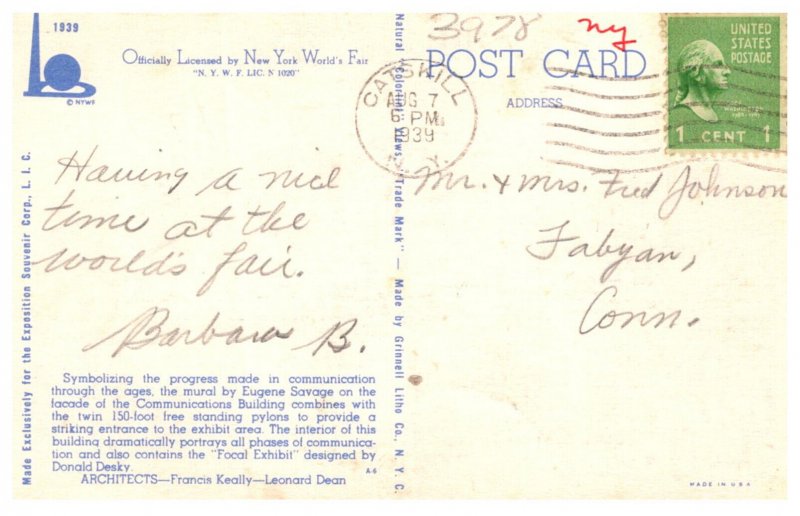 1939
© NYWF
Officially Licensed by New York World's Fair
"N. Y. W. F. LIC. N 1020"
3978
ny
POST CARD
ADDRESS
UNITED
STATES
POSTAGE
WASHINGTON
1 CENT 1
CATSKILL
AUG 7
6 PM
1939
N. Y.
Having a nice
time at the
world's fair.
Barbara B.
Mr. & Mrs. Fred Johnson
Fabyan,
Conn.
Symbolizing the progress made in communication
through the ages, the mural by Eugene Savage on the
facade of the Communications Building combines with
the twin 150-foot free standing pylons to provide a
striking entrance to the exhibit area. The interior of this
building dramatically portrays all phases of communica-
tion and also contains the "Focal Exhibit" designed by
Donald Desky.
A-6
ARCHITECTS—Francis Keally—Leonard Dean
Made Exclusively for the Exposition Souvenir Corp., L. I. C.
Natural "Coloring Views, "Trade Mark" — Made by Grinnell Litho Co., N. Y. C.
MADE IN U S A